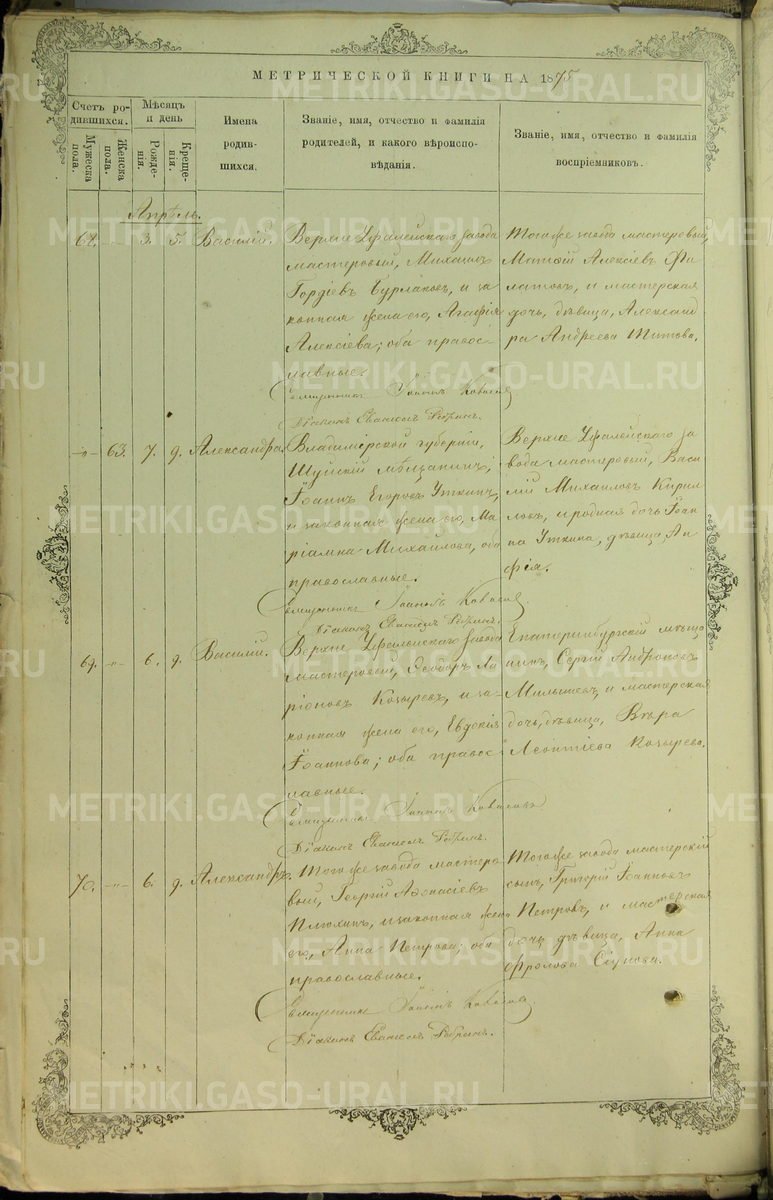 МЕТРИЧЕСКОЙ КНИГИ НА 1875
Счетъ родившихся.
Мужеска пола.
Женска пола.
Мѣсяцъ и день
Рожденія.
Крещенія.
Имена родившихся.
Званіе, имя, отчество и фамилія родителей, и какого вѣроисповѣданія.
Званіе, имя, отчество и фамилія воспріемниковъ.
Апрѣль.
3. 5. Василій.
Верхне Уфалейскаго завода
мастеровый, Михаилъ
Гордіевъ Бурлаковъ, и за
конная жена его, Агафія
Алексіева; оба правос
лавные.
Священникъ Іоаннъ
Діаконъ
Тогоже завода мастеровый,
Матѳій Алексіевъ Фи
латовъ, и мастерская
дочь, дѣвица, Александ
ра Андреева Титова.
63. 7. 9. Александра.
Владимірской губерніи,
Шуйскій мѣщанинъ,
Іоаннъ Егоровъ Уткинъ,
и законная жена его, Ма
ріамна Михайлова, оба
православные.
Священникъ Іоаннъ
Діаконъ
Верхне Уфалейскаго за
вода мастеровый, Васи
лій Михаиловъ Кирил
ловъ, и родная дочь Іоан
на Уткина, дѣвица, Ан
фія.
69. -"- 6. 9. Василій.
Верхне Уфалейскаго завода
мастеровый, Ѳеодоръ Ла
ріоновъ Козыревъ, и за
конная жена его, Евдокія
Іоаннова; оба правос
лавные.
Священникъ Іоаннъ
Діаконъ
Екатеринбургскій мѣща
нинъ, Сергій Андроновъ
и мастерская
дочь, дѣвица, Вѣра
Леонтіева Козырева.
70. -"- 6. 9. Александръ.
Тогоже завода мастеро
вый, Георгій Аѳонасіевъ
Плюхинъ, и законная жена
его, Анна Петрова; оба
православные.
Священникъ Іоаннъ
Діаконъ
Тогоже завода мастерскій
сынъ, Григорій Іоанновъ
Петровъ, и мастерская
дочь, дѣвица, Анна
Фролова
METRIKI.GASO-URAL.RU